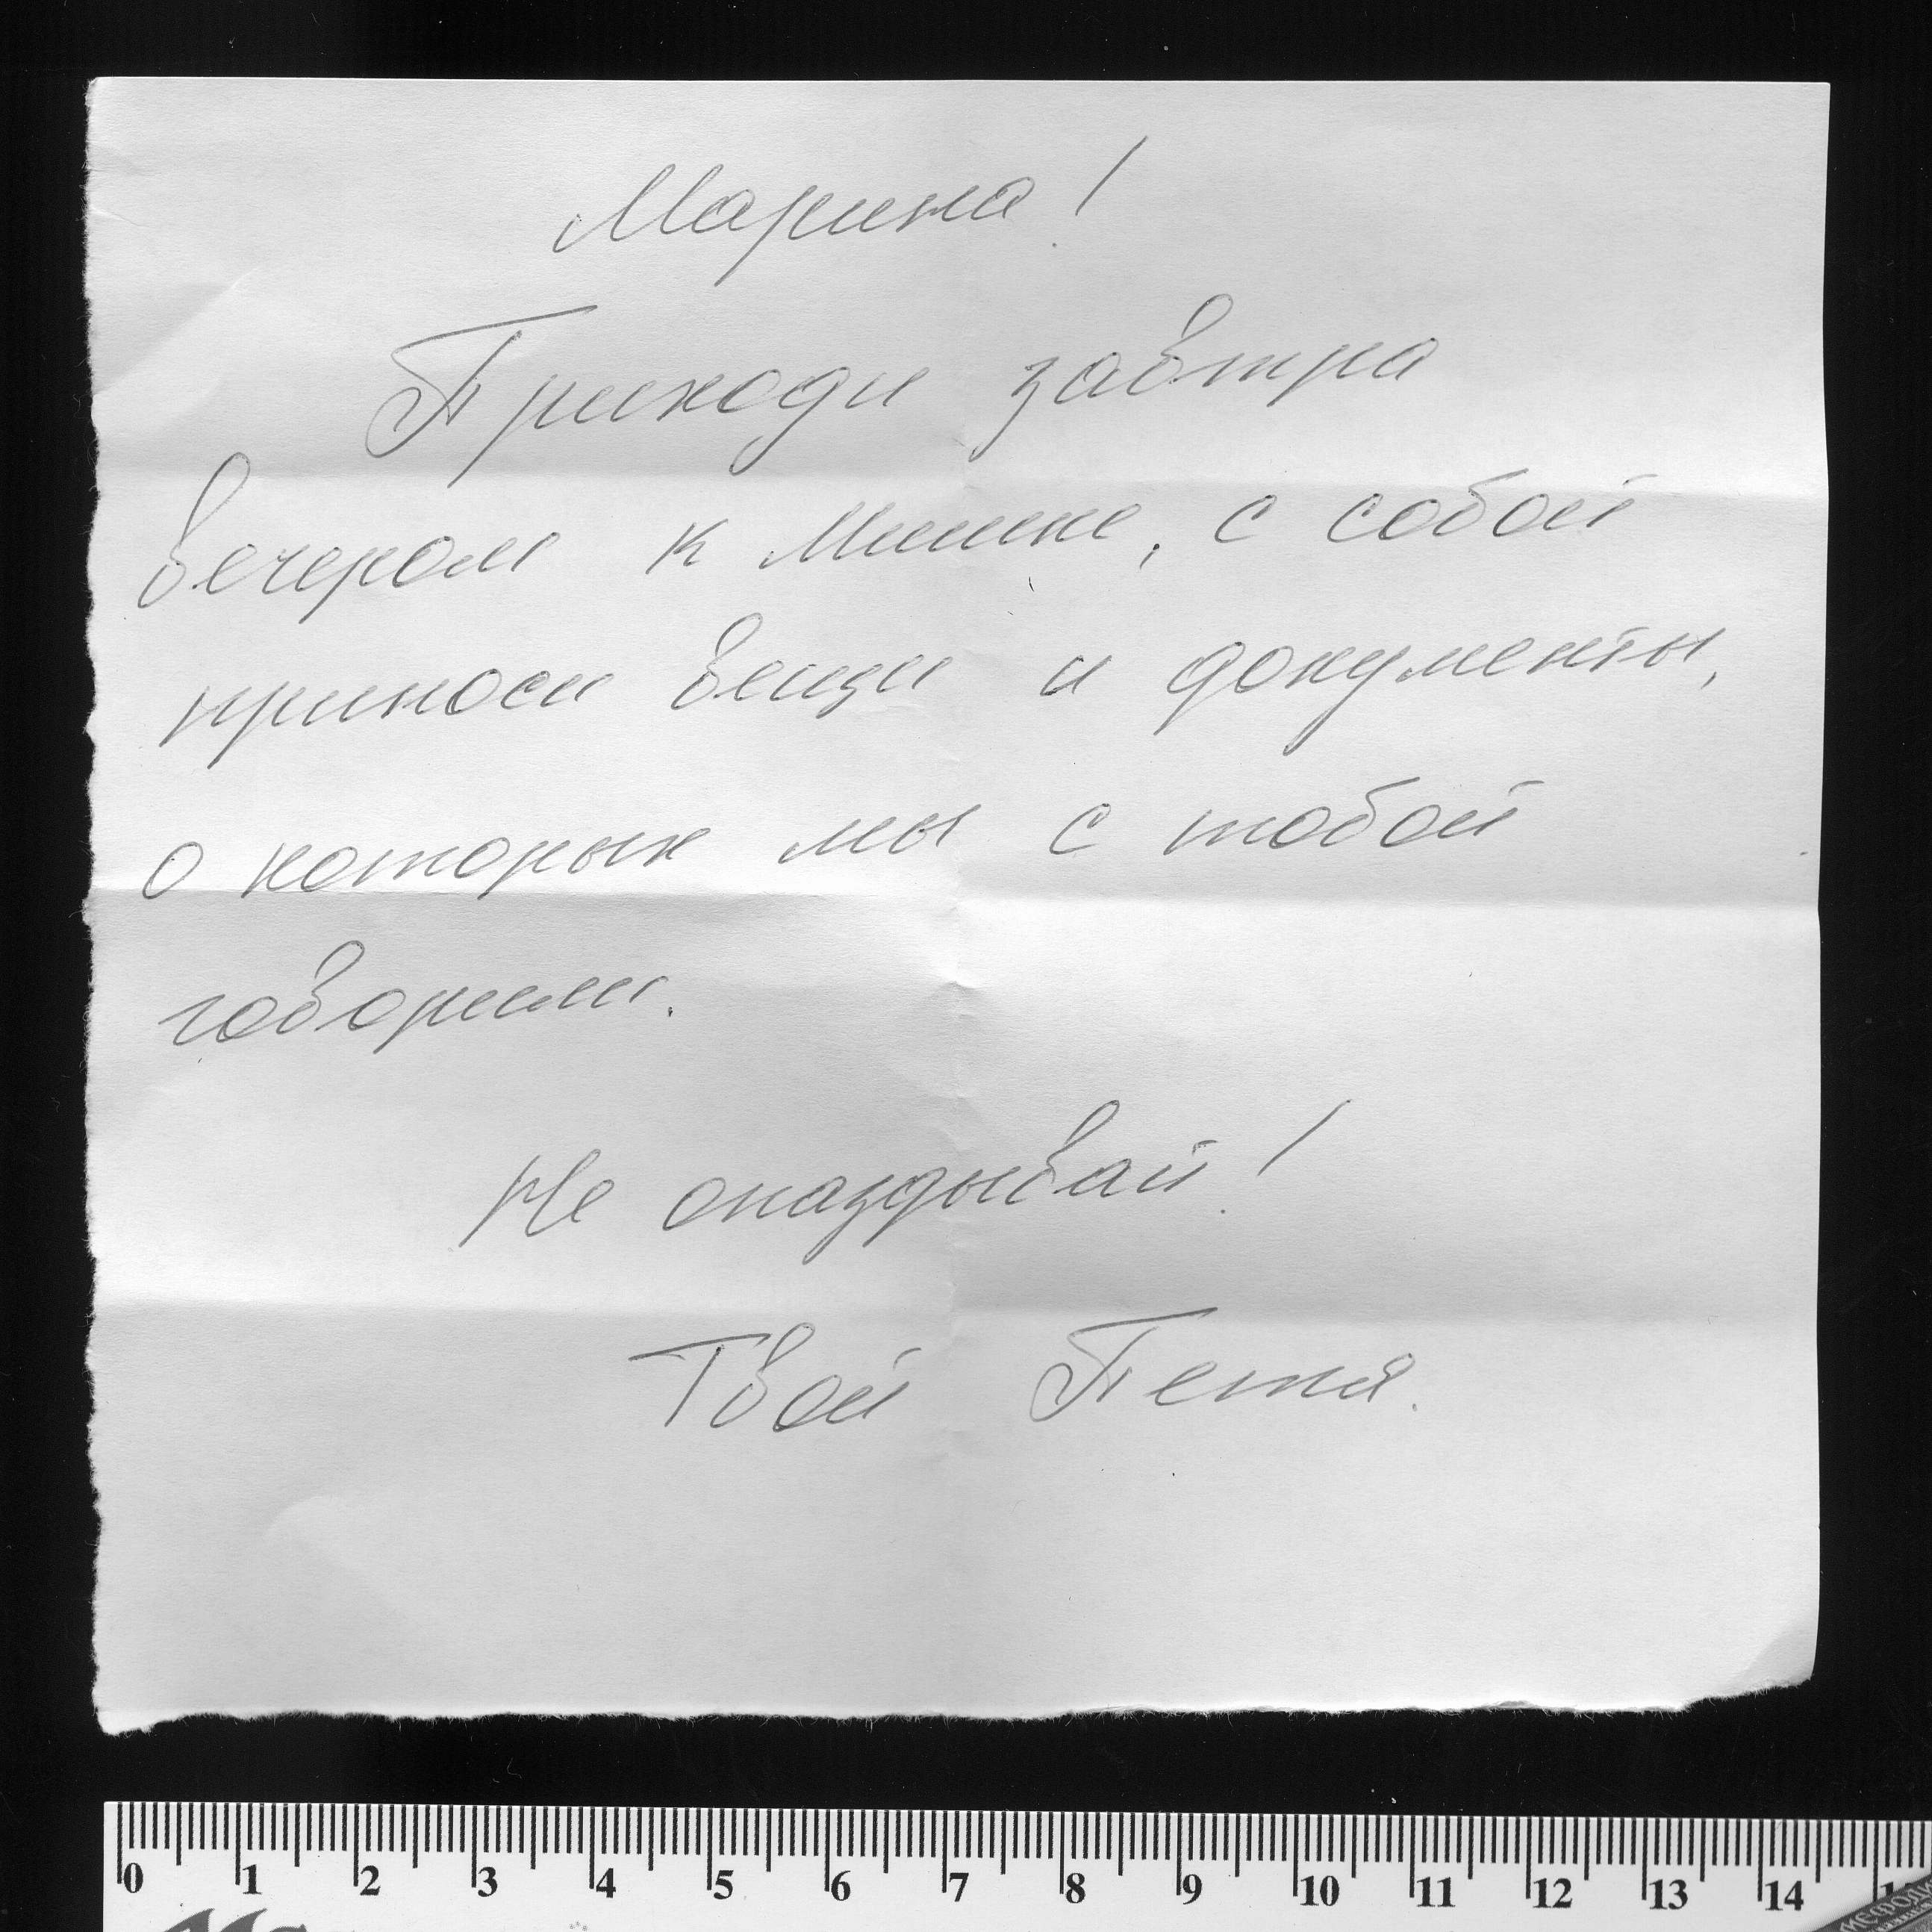 Марина!
Приходи завтра
вечером к Мишке, с собой
приноси вещи и документы,
о которых мы с тобой
говорили.
Не опаздывай!
Твой Петя.
0 1 2 3 4 5 6 7 8 9 10 11 12 13 14